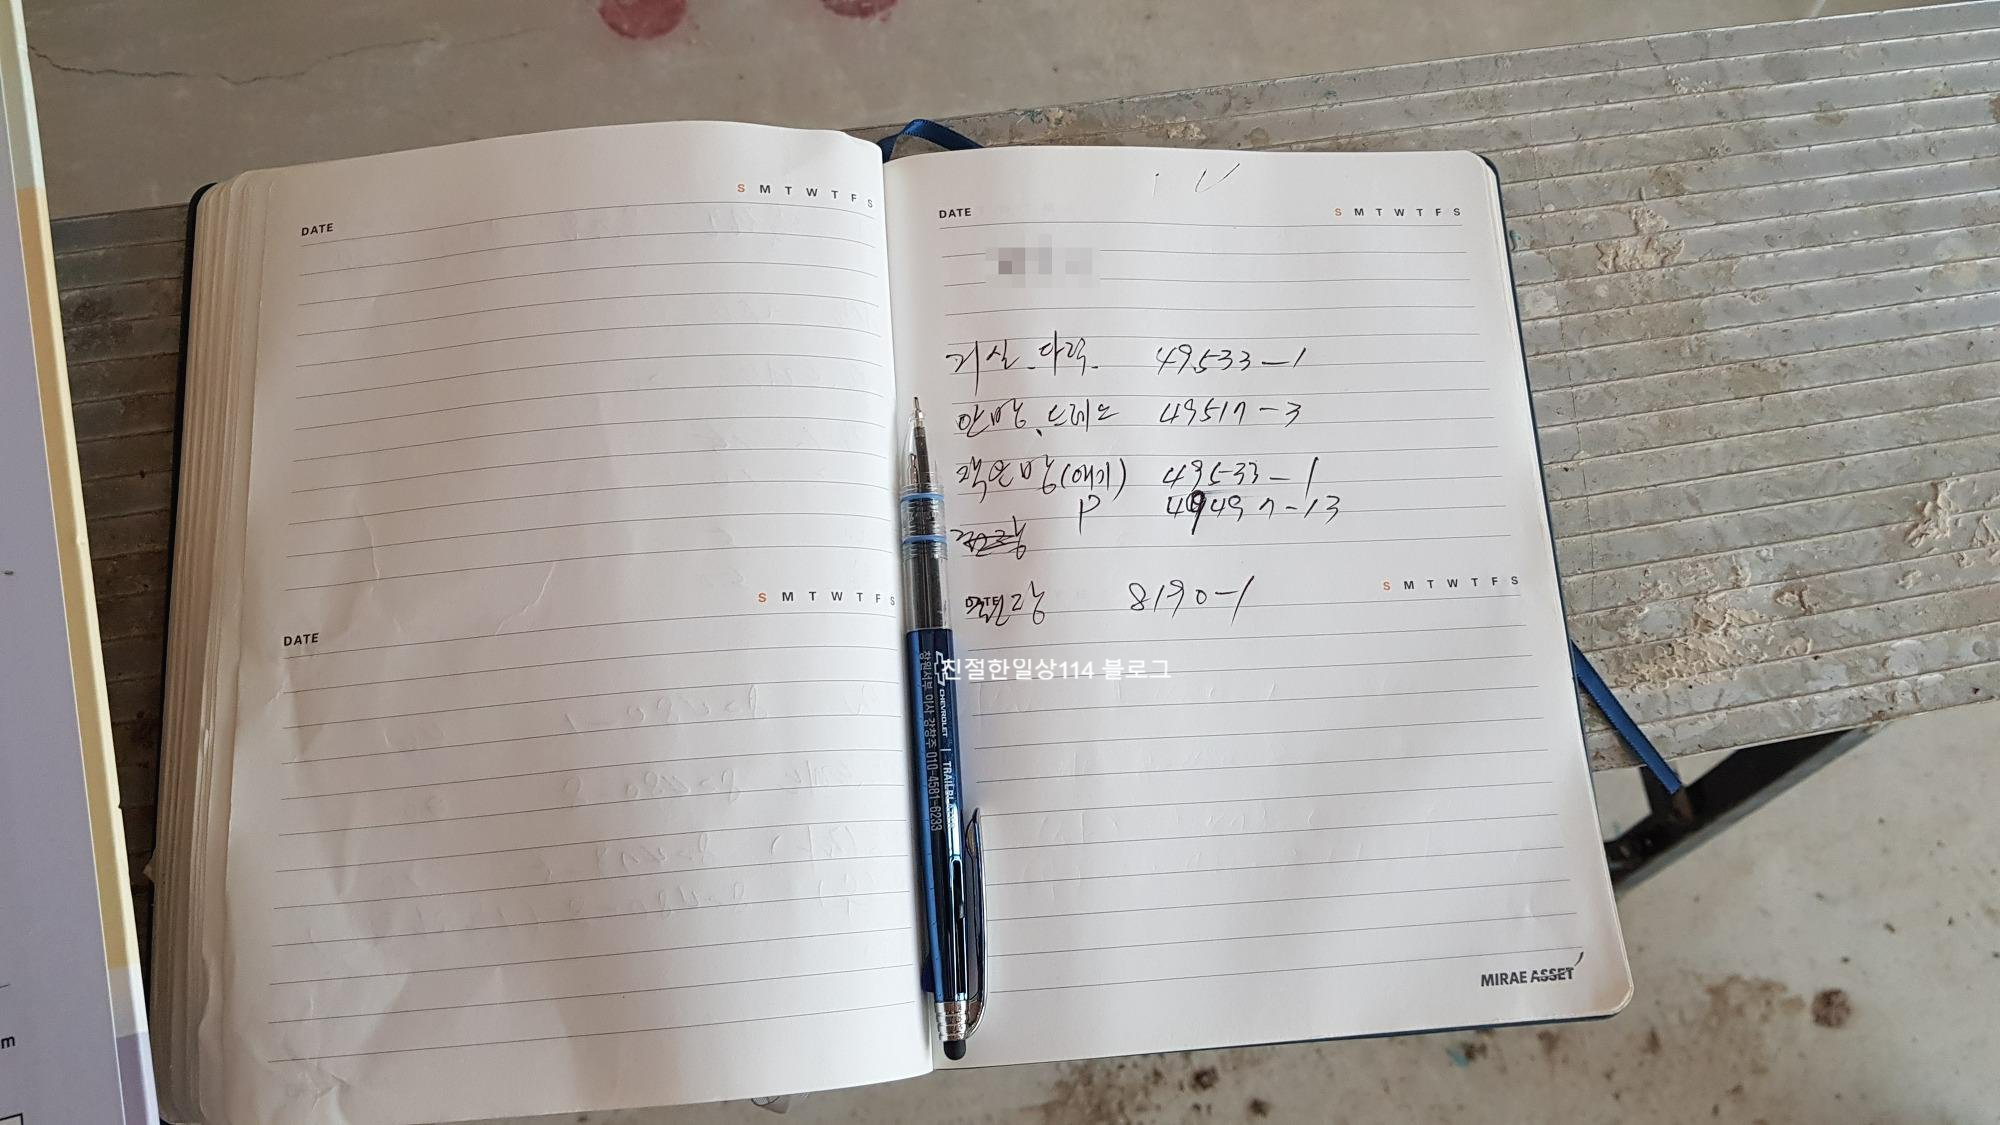 S M T W T F S
DATE
S M T W T F S
DATE
DATE
S M T W T F S
거실 - 다락 - 49533-1
안방, 드레스 49517-3
작은방(애기) 49533-1
P 49497-13
S M T W T F S
DATE
8190-1
친절한일상114 블로그
CHEVROLET | TRAILBLAZER
창원서부 이사 강창주 010-4581-6233
MIRAE ASSET
m